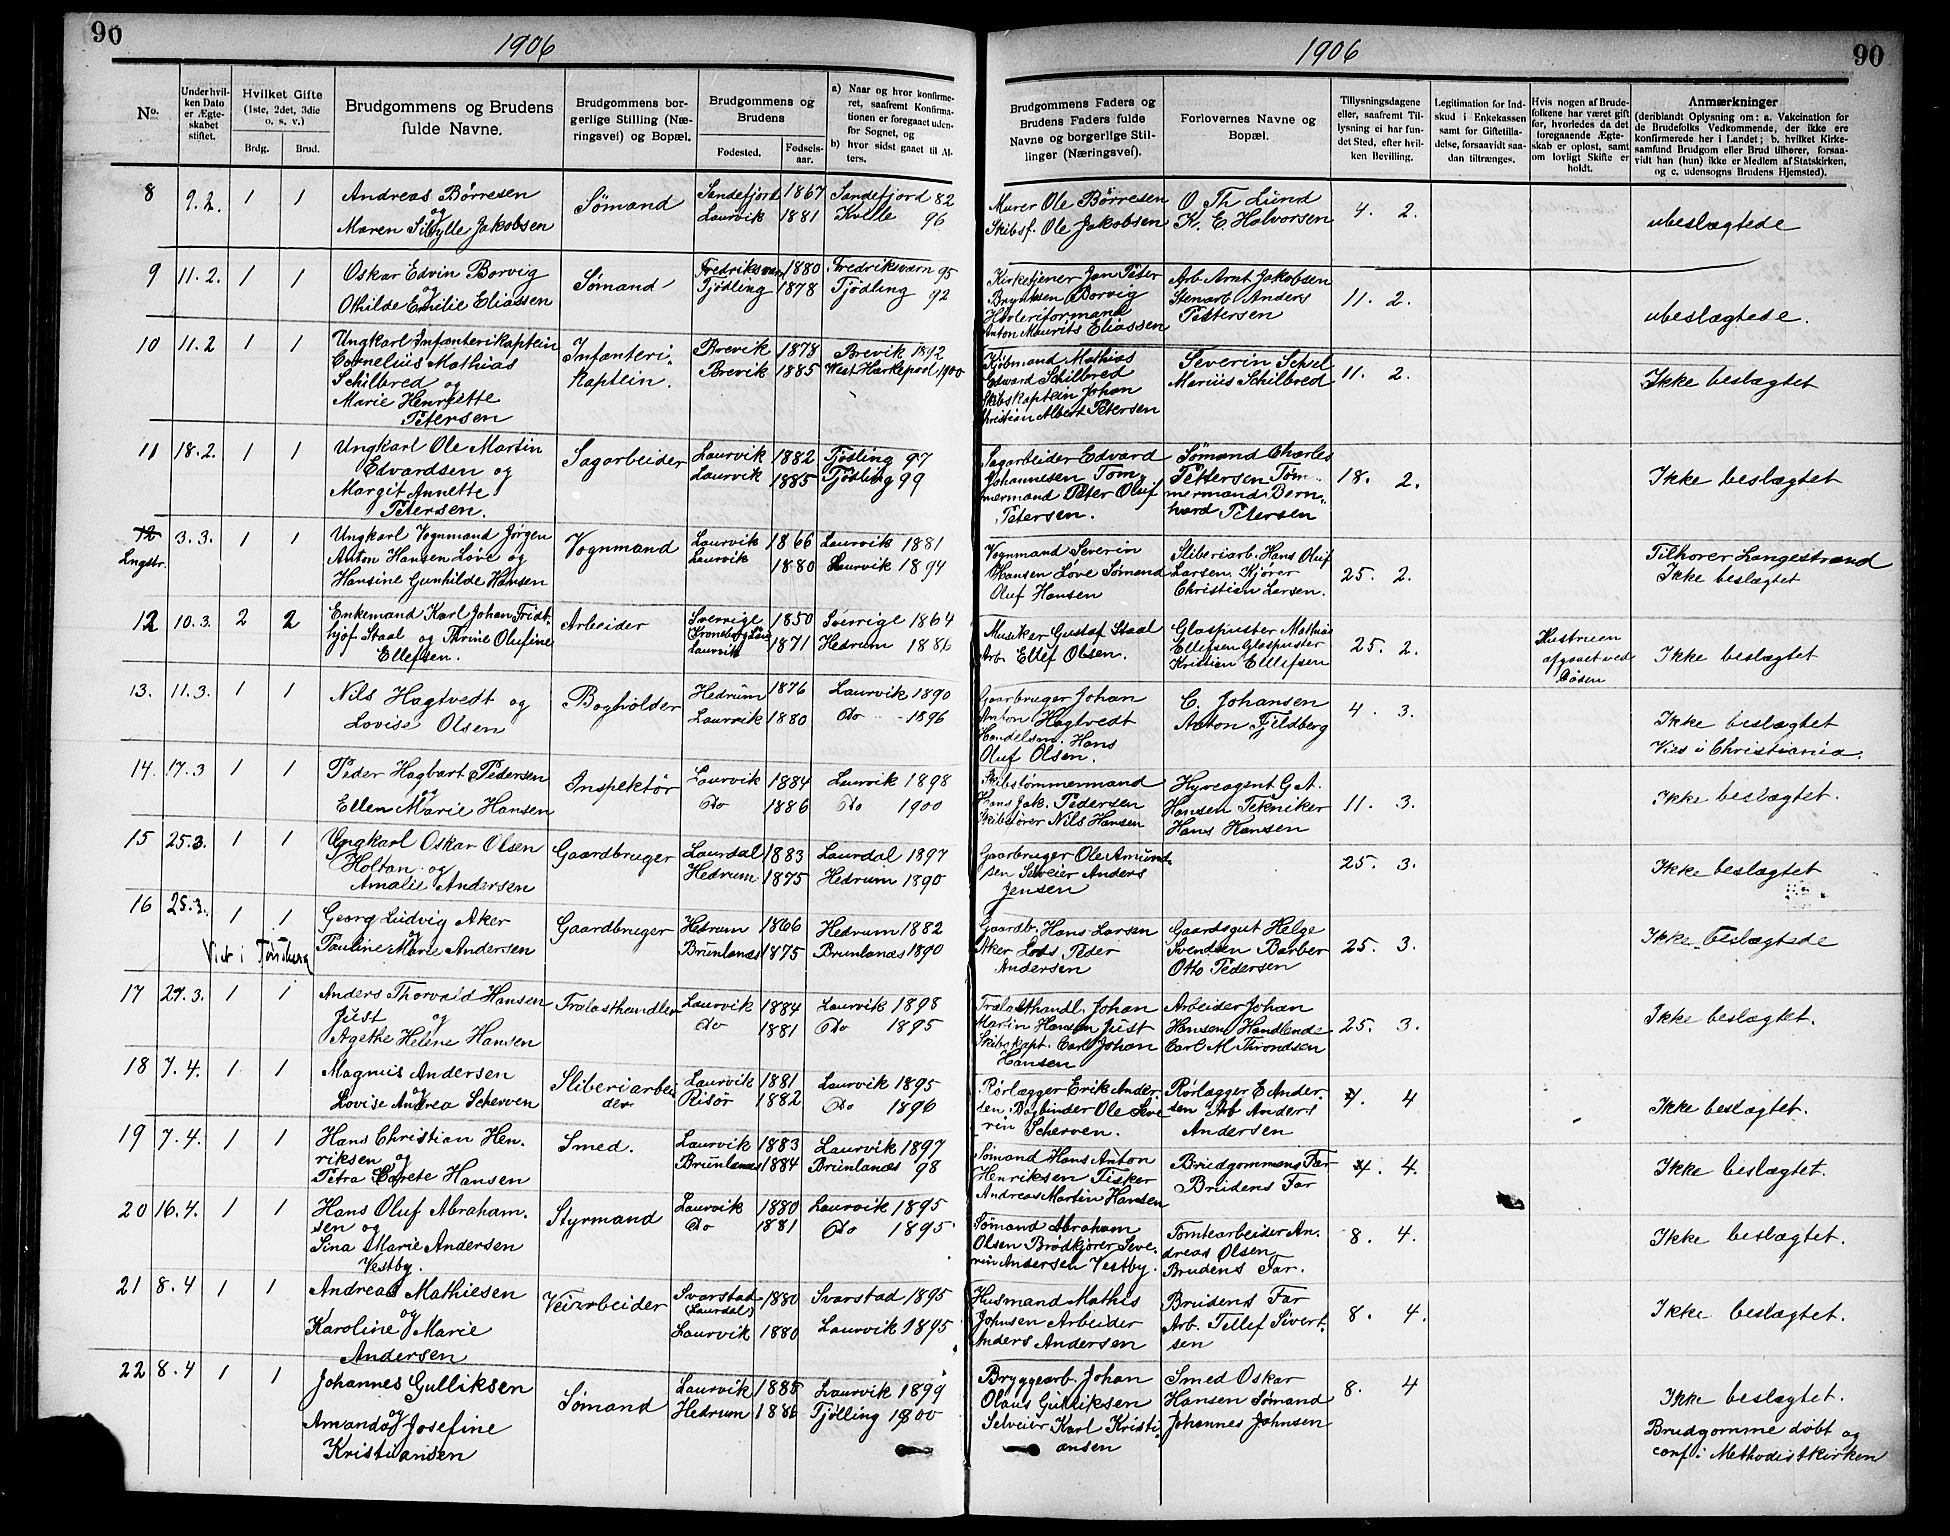 90
1906
No.
Under hvilken Dato er Ægteskabet stiftet.
Hvilket Gifte (1ste, 2det, 3die o. s. v.)
Brdg.
Brud.
Brudgommens og Brudens fulde Navne.
Brudgommens borgerlige Stilling (Næringsvei) og Bopæl.
Brudgommens og Brudens
Fødested.
Fødselsaar.
a) Naar og hvor konfirmeret, saafremt Konfirmationen er foregaaet udenfor Sognet, og
b) hvor sidst gaaet til Alters.
8 9.2. 1 1 Andreas Børresen Sømand Sandefjord 1867 Sandefjord 82
og Laurvik 1881 Kvelle 96
Maren Sibylle Jakobsen
9 11.2. 1 1 Oskar Edvin Borvig Sømand Fredriksværn 1880 Fredriksværn 95
og Tjødling 1878 Tjødling 92
Othilde Emilie Eliassen
10 11.2 1 1 Ungkarl Infanterikaptein Infanteri-
Cornelius Mathias kaptein. Brevik 1878 Brevik 1892
Schilbred og Brevik 1885 West Harlepool 1900
Marie Henriette
Petersen
11 18.2. 1 1 Ungkarl Ole Martin Sagarbeider Laurvik 1882 Tjøsling 97
Edvardsen og Laurvik 1885 Tjødling 99
Margit Annette
Petersen.
12 3.3. 1 1 Ungkarl Vognmand Jørgen Vognmand Laurvik 1866 Laurvik 1881
Lngstr. Anton Hansen Løve og Laurvik 1880 Laurvik 1894
Hansine Gunhilde Hansen
12 10.3. 2 2 Enkemand Karl Johan Fridt- Arbeider Sverrige 1850 Sverrige 1864
hjof Staal og Thrine Olufine (Kronoberg Län) Laurvik 1871 Hedrum 1886
Ellefsen.
13. 11.3. 1 1 Nils Hagtvedt og Bogholder Hedrum 1876 Laurvik 1890
Lovise Olsen Laurvik 1880 Do 1896
14. 17.3 1 1 Peder Hagbart Pedersen Inspektør Laurvik 1884 Laurvik 1898
og Do 1886 Do 1900
Ellen Marie Hansen
15 25.3. 1 1 Ungkarl Oskar Olsen Gaardbruger Laurdal 1883 Laurdal 1897
Holtan og Hedrum 1875 Hedrum 1890
Amalie Andersen
16 25.3. 1 1 Georg Ludvig Aker Gaardbruger Hedrum 1866 Hedrum 1882
og Brunlanæs 1875 Brunlanæs 1890
Pauline Marie Andersen
Viet i Tønsberg
17 27.3. 1 1 Anders Thorvald Hansen Trælasthandler Laurvik 1884 Laurvik 1898
Just og Do 1881 Do 1895
Agethe Helene Hansen
18 7.4. 1 1 Magnus Andersen Sliberiarbei- Laurvik 1881 Laurvik 1895
og der Risør 1882 Do 1896
Lovise Andrea Scherven
19 7.4. 1 1 Hans Christian Hen- Smed. Laurvik 1883 Laurvik 1897
riksen og Brunlanæs 1884 Brunlanæs 98
Petra Carete Hansen
20 16.4. 1 1 Hans Oluf Abraham- Styrmand Laurvik 1880 Laurvik 1895
sen og Do 1881 Do 1895
Sina Marie Andersen
Vestby.
21 8.4 1 1 Andreas Mathiesen Veiarbeider Svarstad 1880 Svarstad 1895
og (Laurdal)
Karoline Marie Laurvik 1880 Laurvik 1895
Andersen
22 8.4 1 1 Johannes Gulliksen Sømand Laurvik 1885 Laurvik 1899
og Hedrum 1886 Tjølling 1900
Amanda Josefine
Kristiansen
1906
90
Brudgommens Faders og Brudens Faders fulde Navne og borgerlige Stillinger (Næringsvei).
Forlovernes Navne og Bopæl.
Tillysningsdagene eller, saafremt Tillysning ei har fundet Sted, efter hvilken Bevilling.
Legitimation for Indskud i Enkekassen samt for Giftetilladelse, forsaavidt saadan tiltrænges.
Hvis nogen af Brudefolkene har været gift før, hvorledes da det foregaaende Ægteskab er opløst, samt om lovligt Skifte er holdt.
Anmærkninger
(deriblandt Oplysning om: a. Vakcination for de Brudefolks Vedkommende, der ikke ere konfirmerede her i Landet; b. hvilket Kirkesamfund Brudgom eller Brud tilhører, forsaavidt han (hun) ikke er Medlem af Statskirken, og c. udensogns Brudens Hjemsted).
Murer Ole Børresen O. Th Lund 4. 2.
Skibsf. Ole Jakobsen K. E. Halvorsen ubeslægtede
Kirketjener Jan Peter Arb. Arnt Jakobsen
Brynildsen Borvig Stenarb. Anders 11. 2.
Høvleriformand Pettersen ubeslægtede.
Anton Maurits Eliassen
Kjøbmand Mathias Severin Schil
Edvard Schilbred Marius Schilbred 11. 2. Ikke beslægtet
Skibskaptein Johan
Christian Albert Petersen
Sagarbeider Edvard Sømand Charles
Johannesen Tøm- Pettersen Tøm- 18. 2. Ikke beslægtet
mermand Peter Oluf mermand Bern-
Petersen. hard Petersen
Vognmand Severin Sliberiarb. Hans Oluf Tilhører Langestrand
Hansen Løve Sømand Larsen. Kjører 25. 2. Ikke beslægtet
Oluf Hansen Christian Larsen.
Musiker Gustaf Staal Glaspuster Mathias Hustruen
Arb. Ellef Olsen. Ellefsen Glaspuster 25. 2. afgaaet ved Ikke beslægtet
Kristian Ellefsen Døden
Gaarbruger Johan C. Johansen 4. 3.
Anton Hagtvedt Anton Fjeldberg Ikke beslægtet
Handelsm. Hans Vies i Christiania.
Oluf Olsen.
Skibstømmermand Hyreagent G.A.
Hans Jak. Pedersen Hansen Tekniker 11. 3. Ikke beslægtet.
Skibsfører Nils Hansen Hans Hansen
Gaarbruger Ole Amund- 25. 3.
sen Selveier Anders Ikke beslægtet
Jensen
Gaardb. Hans Larsen Gaardsgut Helge
Aker Lods Peder Svendsen Barber 25. 3. Ikke beslægtede
Andersen Otto Pedersen
Trælasthandl. Johan Arbeider Johan
Martin Hansen Just Hansen Handlende 25. 3. Ikke beslægtet.
Skibskapt. Carl Johan Carl M Throndsen
Hansen
Rørlægger Erik Ander- Rørlægger E Ander-
sen, Bogbinder Ole Seve- sen Arb Anders 7. 4 Ikke beslægtet.
rin Scherven. Andersen
Sømand Hans Anton Brudgommens Far
Henriksen Fisker Brudens Far 7. 4. Ikke beslægtet.
Andreas Martin Hansen
Sømand Abraham Tomtearbeider An-
Olsen Brødkjører Seve- dreas Olsen 8. 4. Ikke beslægtet.
rin Andersen Vestby. Brudens Far.
Husmand Mathis Brudens Far
Johnsen Arbeider Arb. Tellef Sivert- 8. 4. Ikke beslægtet.
Anders Andersen sen
Bryggearb. Johan Smed Oskar
Olaus Gulliksen Hansen Sømand 8. 4 Ikke beslægtet.
Selveier Karl Kristi- Johannes Johnsen Brudgomme døbt og
ansen conf. i Methodistkirken